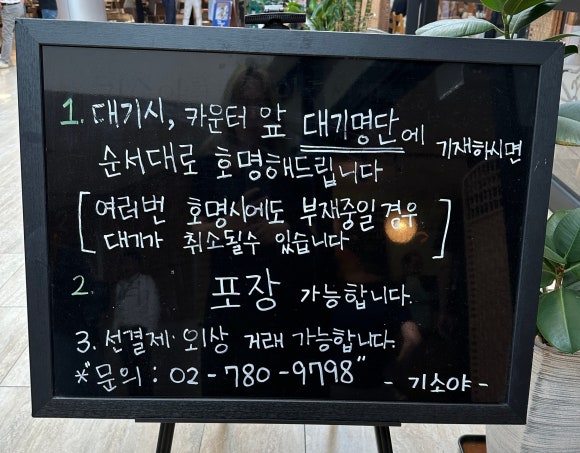 1. 대기시, 카운터 앞 대기명단에 기재하시면
순서대로 호명해드립니다
[여러번 호명시에도 부재중일 경우
대기가 취소될수 있습니다]
2. 포장 가능합니다.
3. 선결제·외상 거래 가능합니다.
*"문의 : 02-780-9798" - 기소야 -